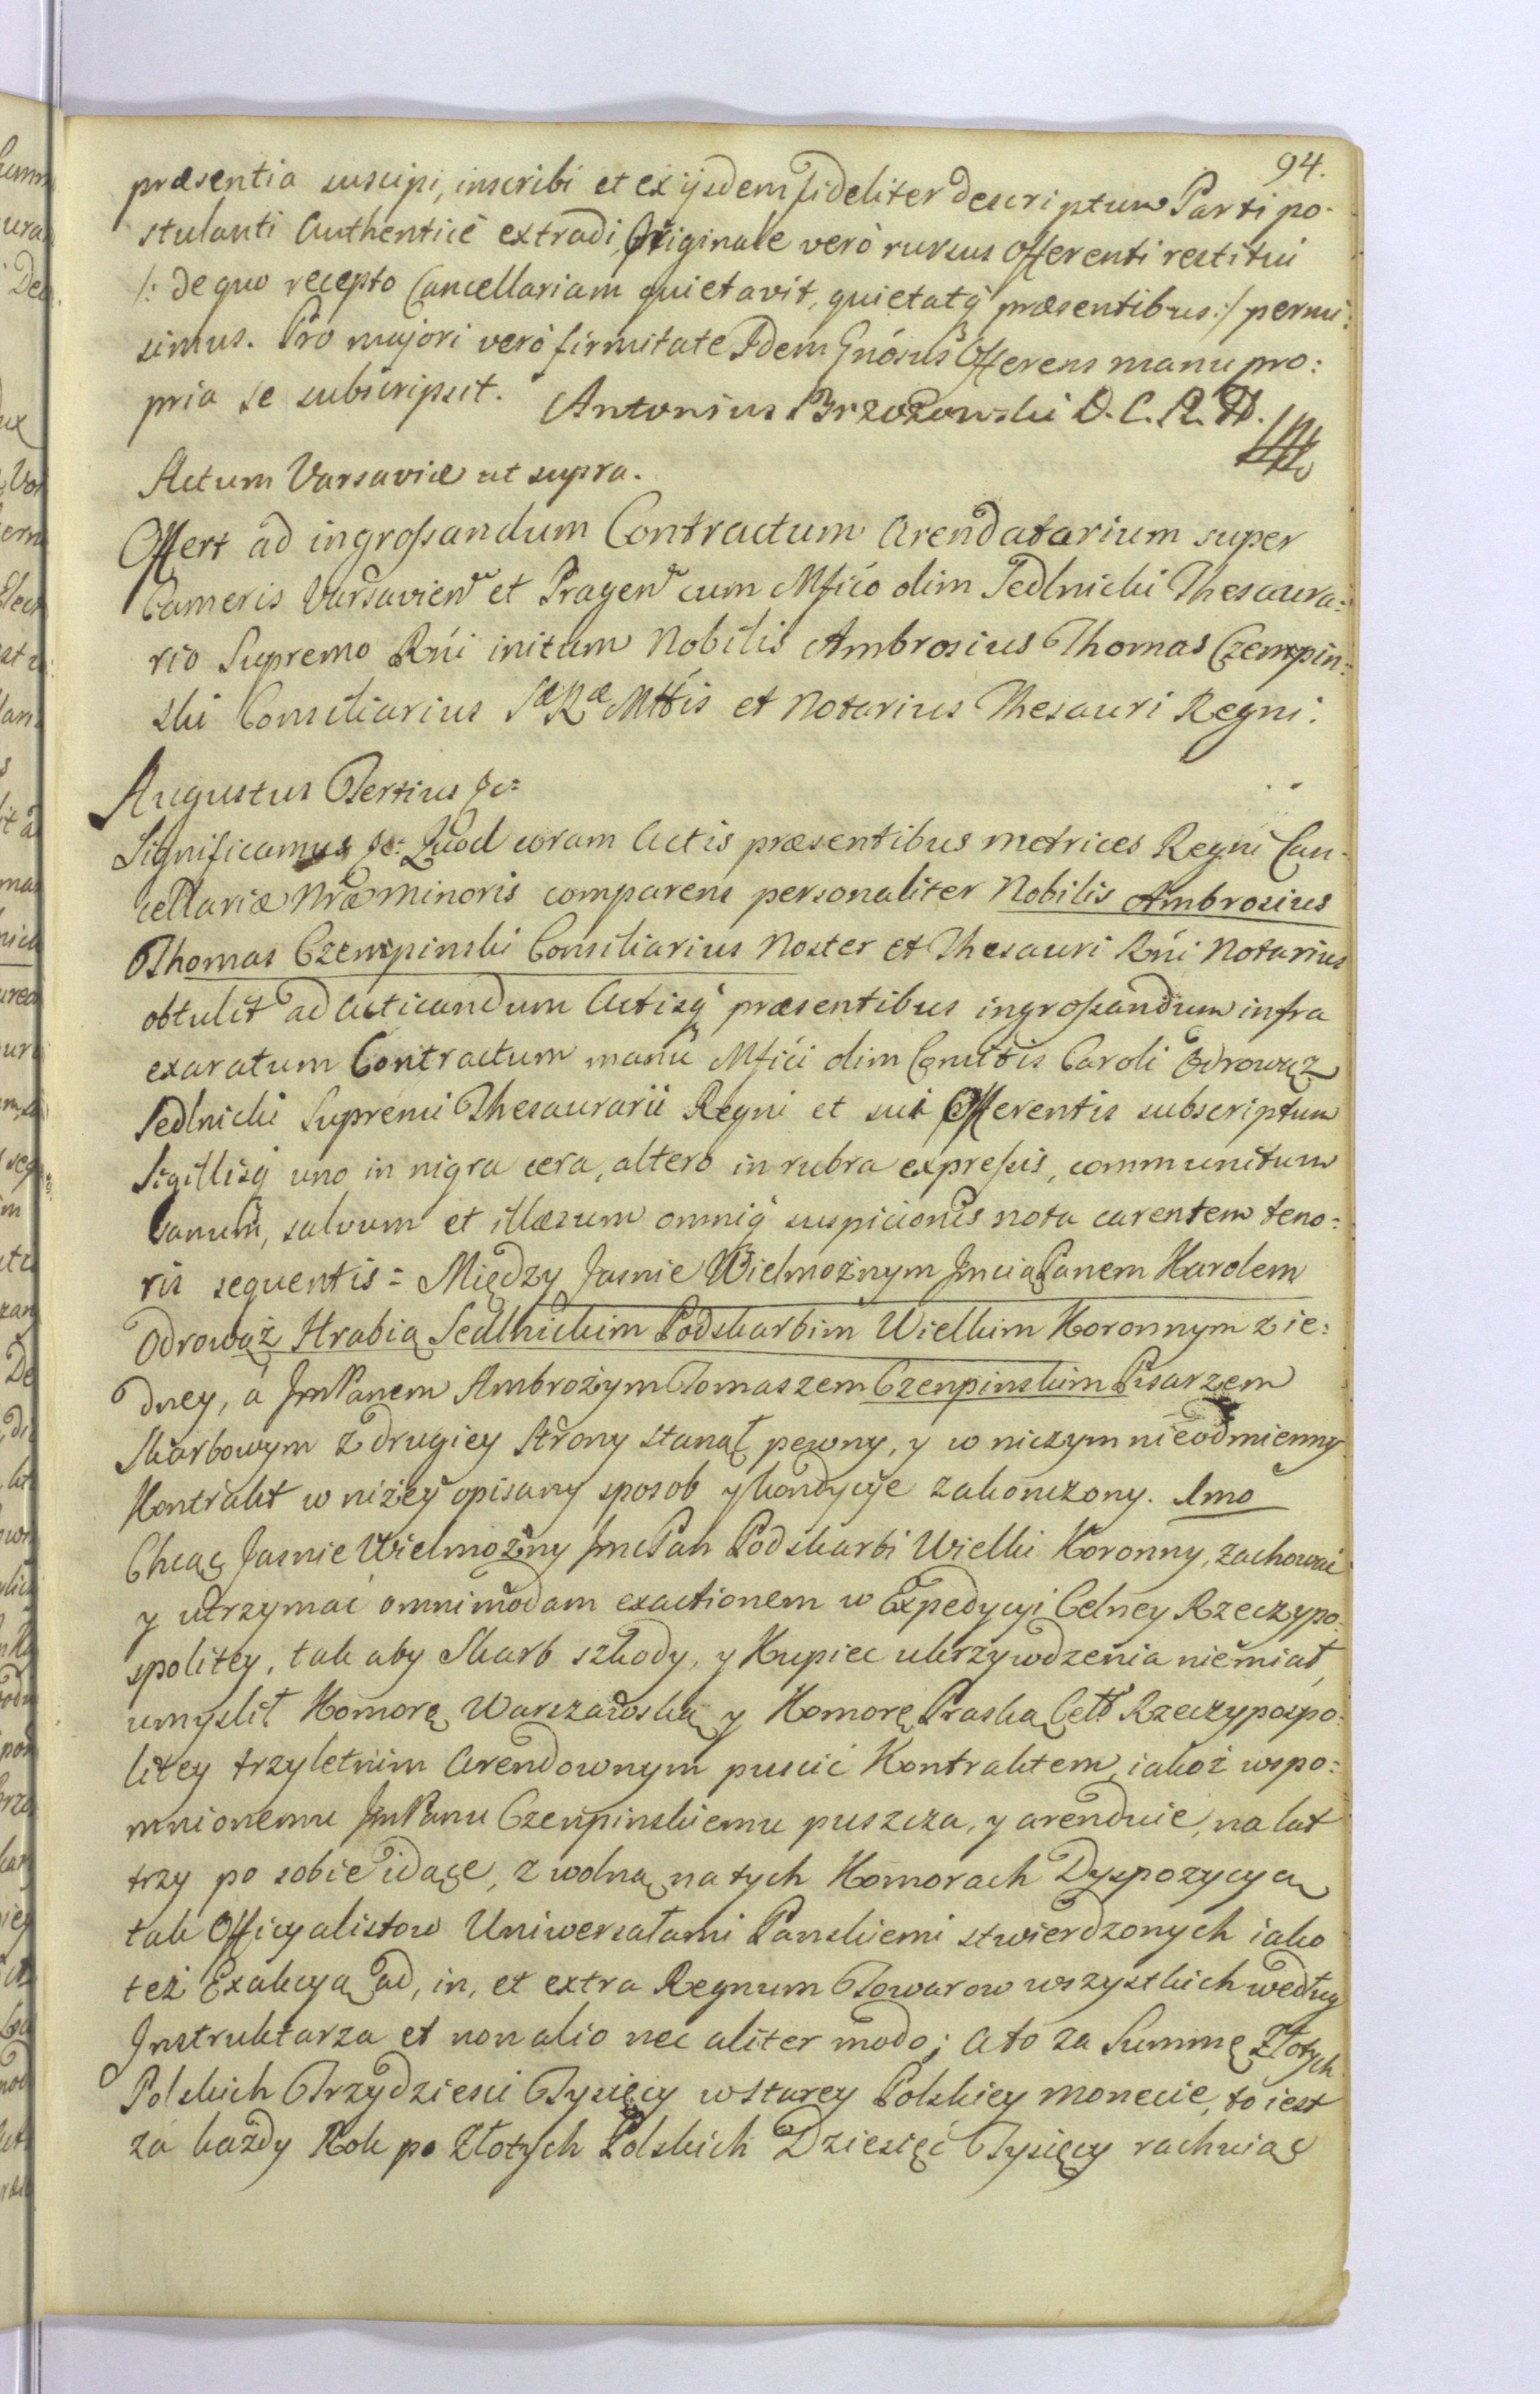 94.
præsentia suscipi, inscribi et ex ijsdem fideliter descriptum Parti po-
stulanti Authenticè extradi, Originale verò rursus Offerenti restitui
/: de quo recepto Cancellariam quietavit, quietatq́ præsentibus :/ permi:
simus. Pro majori verò firmitate Idem Gnósus Offerens manu pro:
pria se subscripsit. Antonius Brzozowski D. C. R.
Actum Varsaviæ ut supra.
Offert ad ingrossandum Contractum Arendatarium super
Cameris Varsavien et Pragen cum Mfíco olim Sedlnicki Thesaura:
rio Supremo Rńi initum Nobilis Ambrosius Thomas Czempin:
ski Consiliarius Sæ Ræ Mttis et Notarius Thesauri Regni.
Augustus Tertius &c:
Significamus &c: Quod coram Actis præsentibus metrices Regni Can-
cellariæ Nræ Minoris comparens personaliter Nobilis Ambrosius
Thomas Czempinski Consiliarius Noster et Thesauri Rńi Notarius
obtulit ad acticandum Actisq́ præsentibus ingrossandum infra
exaratum Contractum manu Mfíci olim Comitis Caroli Odrowąz
Sedlnicki Supremi Thesaurarii Regni et sui Offerentis subscriptum
Sigillisq́ uno in nigra cera, altero in rubra expressis, communitum
sanum, salvum et illæsum omniq́ suspicionis nota carentem teno:
ris sequentis = Między Jasnie Wielmożnym Jmcią Panem Karolem
Odrowąż Hrabią Sedlnickim Podskarbim Wielkim Koronnym z ie:
dney, á JmPanem Ambrożym Tomaszem Czenpinskim Pisarzem
Skarbowym z drugiey Strony stanął pewny, y w niczym nieodmienny
Kontrakt w niżey opisany sposob y kondycye zakończony. 1mo
Chcąc Jasnie Wielmożny JmcPan Podskarbi Wielki Koronny, zachować
y utrzymać omnimodam exactionem w Expedycyi Celney Rzeczypo:
spolitey, tak aby Skarb szkody, y Kupiec ukrzywdzenia niemiał,
umyslił Komorę Warszawską y Komorę Praską Cełł Rzeczypospo:
litey trzyletnim Arendownym puscić Kontraktem, iakoż wspo:
mnionemu JmPanu Czenpinskiemu puszcza, y arenduie, na lat
trzy po sobie idące, z wolną na tych Komorach Dyspozycyą
tak Officyalistow Uniwersałami Panskiemi stwierdzonych iako
też Exakcyą ad, in, et extra Regnum Towarow wszystkich według
Instruktarza et non alio nec aliter modo; a to za Summę Złotych
Polskich Trzydziesci Tysięcy w starey Polskiey monecie, to iest
zá każdy Rok po Złotych Polskich Dziesięć Tysięcy rachuiąc